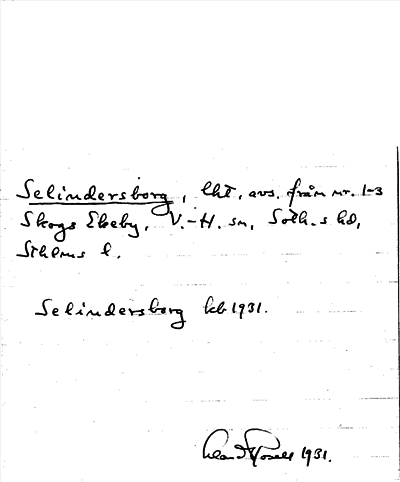 Selindersborg, lht, avs. från nr. 1-3
Skogs Ekeby, V.-H. sn, Soth.s hd,
Sthlms l.
Selindersborg kb 1931.
1931.